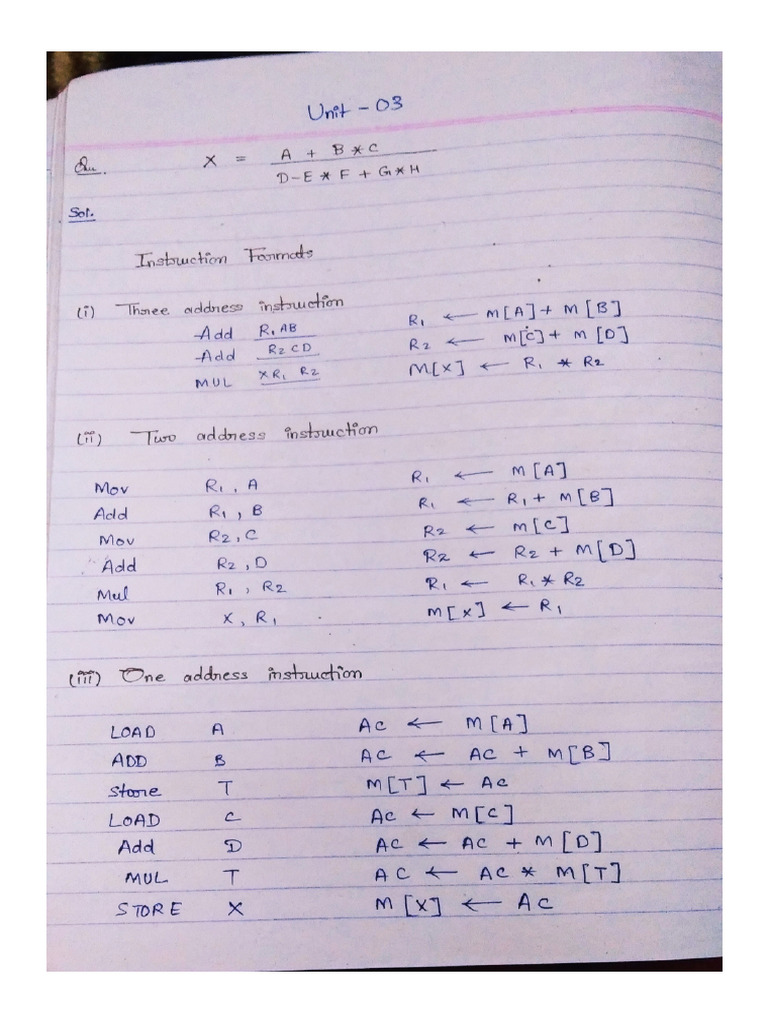 Unit - 03
Qu. X = A + B * C
D - E * F + G * H
Sol.
Instruction Formats
(i) Three address instruction
Add R1 AB R1 ← M[A] + M[B]
Add R2 CD R2 ← M[C] + M[D]
MUL X R1 R2 M[X] ← R1 * R2
(ii) Two address instruction
Mov R1, A R1 ← M[A]
Add R1, B R1 ← R1 + M[B]
Mov R2, C R2 ← M[C]
Add R2, D R2 ← R2 + M[D]
Mul R1, R2 R1 ← R1 * R2
Mov X, R1 M[X] ← R1
(iii) One address instruction
LOAD A AC ← M[A]
ADD B AC ← AC + M[B]
Store T M[T] ← AC
LOAD C AC ← M[C]
Add D AC ← AC + M[D]
MUL T AC ← AC * M[T]
STORE X M[X] ← AC